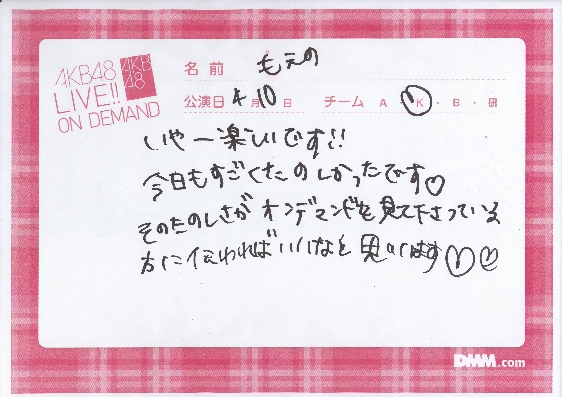 AKB48
LIVE!!
ON DEMAND
AKB
48
名前 もえの
公演日 4月10日 チーム A・K・B・研
いやー楽しいです!!
今日もすごくたのしかったです♡
そのたのしさがオンデマンドを見て下さっている
方に伝わればいいなと思います♡♡
DMM.com